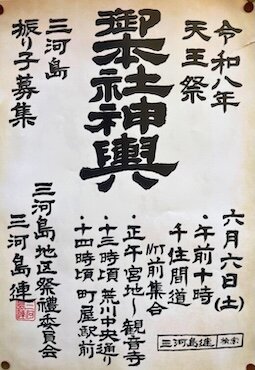 令和八年
天王祭
御本社神輿
三河島
振り子募集
六月六日(土)
・午前十時
千住間道
NTT前集合
・正午宮地〜観音寺
・十三時頃 荒川中央通り
・十四時頃 町屋駅前
三河島地区祭禮委員会
三河島連
三河島連 検索